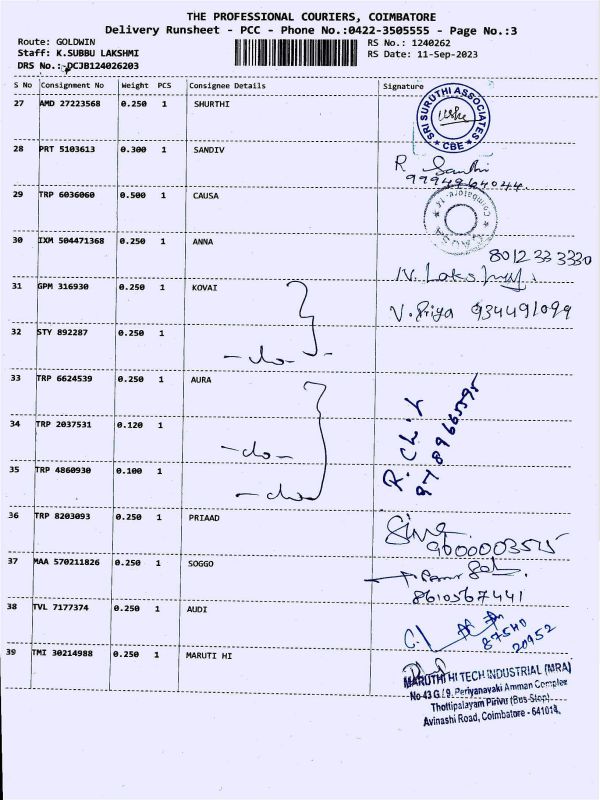 THE PROFESSIONAL COURIERS, COIMBATORE
Delivery Runsheet - PCC - Phone No.:0422-3505555 - Page No.:3
Route: GOLDWIN RS No.: 1240262
Staff: K.SUBBU LAKSHMI RS Date: 11-Sep-2023
DRS No.: DCJB124026203
S No Consignment No Weight PCS Consignee Details Signature
27 AMD 27223568 0.250 1 SHURTHI
SRI SURUTHI ASSOCIATES
CBE
28 PRT 5103613 0.300 1 SANDIV
R
29 TRP 6036060 0.500 1 CAUSA
30 IXM 504471368 0.250 1 ANNA
8012 33 3330
31 GPM 316930 0.250 1 KOVAI
V. Priya 934491099
32 STY 892287 0.250 1
-do-
33 TRP 6624539 0.250 1 AURA
34 TRP 2037531 0.120 1
-do-
35 TRP 4860930 0.100 1
-do-
36 TRP 8203093 0.250 1 PRIAAD
37 MAA 570211826 0.250 1 SOGGO
8610567441
38 TVL 7177374 0.250 1 AUDI
87540
20952
39 TMI 30214988 0.250 1 MARUTI HI
MARUTHI HI TECH INDUSTRIAL (MRA)
No 43 G / 9, Periyanayaki Amman Complex
Thottipalayam Pirivu (Bus Stop)
Avinashi Road, Coimbatore - 641014.